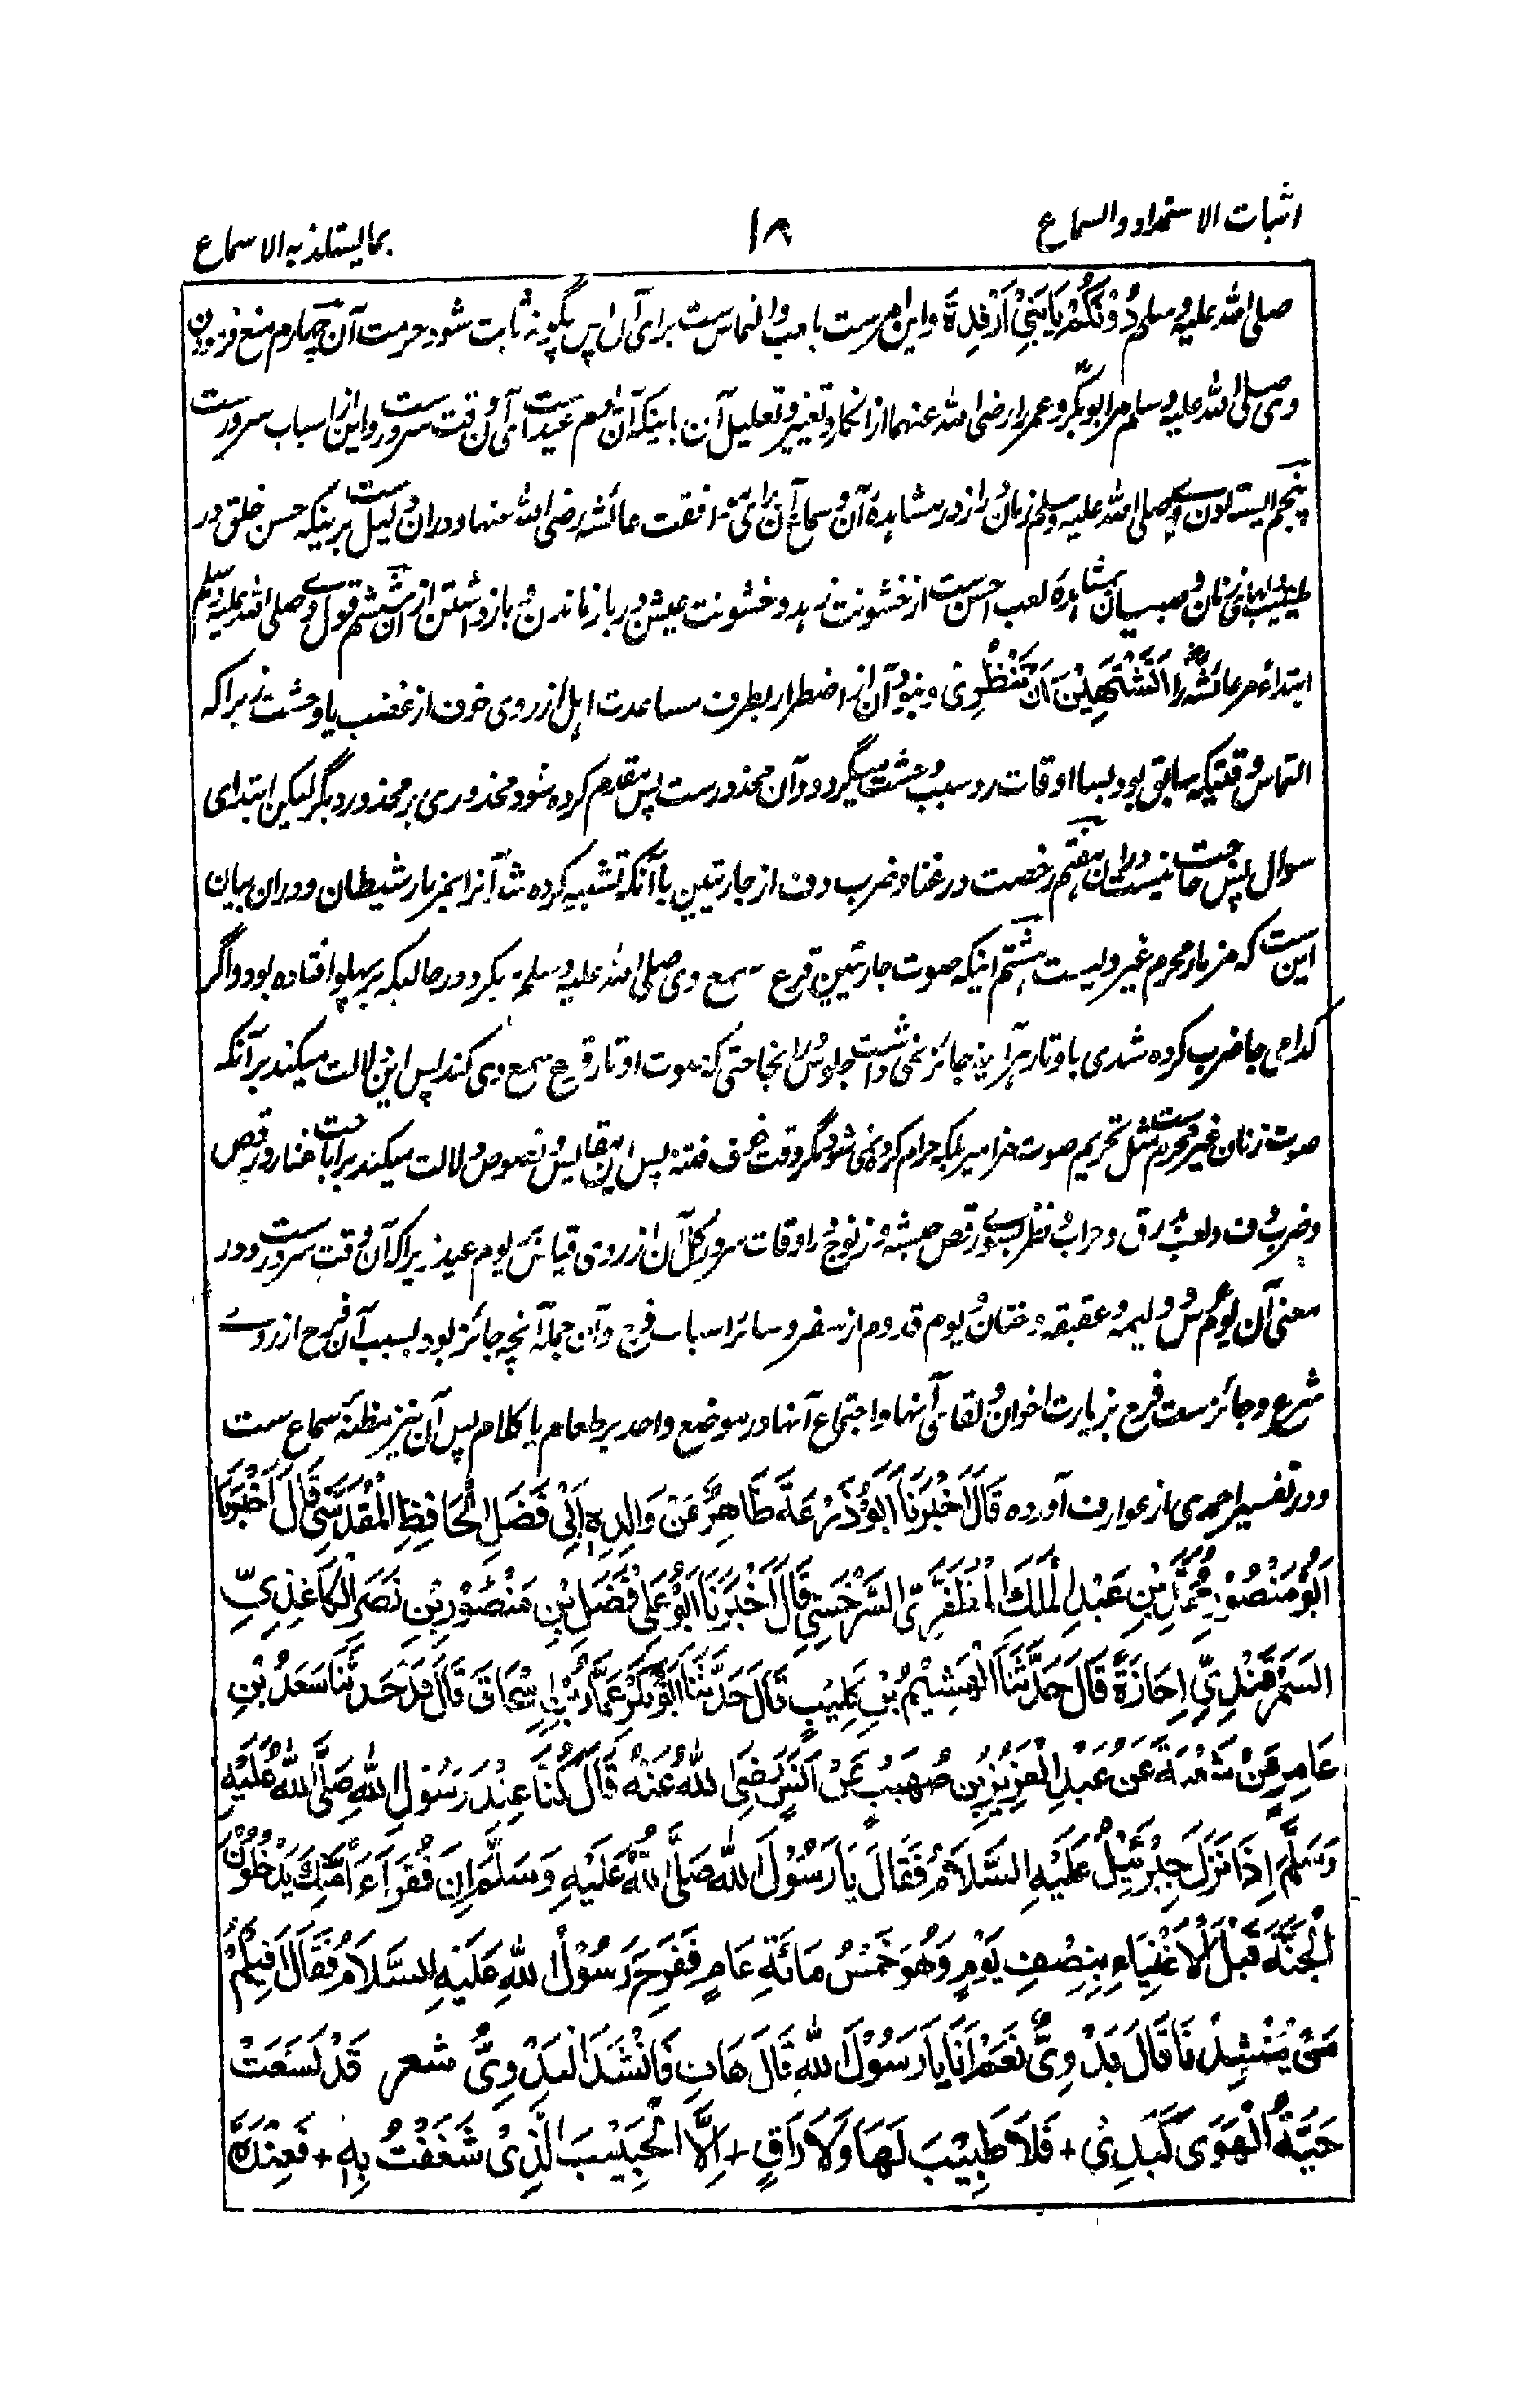 اثبات الاستمداد والسماع ۱۸ بما يستلذ به الاسماع
صلی الله علیه وسلم دُوْنَكُمْ يَا بَنِيْ اَرْفِدَةَ واین امرست بلعب والتماس ست برای آن پس چگونه ثابت شود حرمت آن چهارم منع فرمودن
وی صلی الله علیه وسلم مر ابوبکر و عمر را رضی الله عنهما از انکار و تغییر و تعلیل آن باینکه آن یوم عیدست ای آن وقت سرورست و این از اسباب سرورست
پنجم ایستادن وے صلی الله علیه وسلم زمان دراز در مشاهدهٔ آن و سماع آن برای موافقت عائشه رضی الله عنها و دران دلیل ست برینکه حسن خلق در
طیب دلهای زنان و صبیان بمشاهدهٔ لعب احسن ست از خشونت زهد و خشونت عیش در باز ماندن و باز داشتن ازان ششم قول وے صلی الله علیه وسلم
ابتداءً مر عائشه را اَتَشْتَهِيْنَ اَنْ تَنْظُرِی و نبود آن از اضطرار بطرف مساعدت اهل از روی خوف از غضب یا وحشت زیرا که
التماس وقتیکه سابق بود بسا اوقات رد سبب وحشت میگردد و آن محذورست پس مقدم کرده شود محذوری بر محذور دیگر لیکن ابتدای
سوال پس حاجت نیست دران هفتم رخصت در غنا و ضرب دف از جاریتین با آنکه تشبیه کرده شد آنرا بمزمار شیطان و دران بیان
این ست که مزمار محرم غیر ولیست هشتم اینکه صوت جاریتین قرع سمع وی صلی الله علیه وسلم میکرد در حالیکه بر پهلو افتاده بود و اگر
کدامی جا ضرب کرده شدی باوتار هرآینه جائز نمی داشت جلوس را انجا حتی که صوت اوتار قرع سمع وی کند پس این دلالت میکند بر آنکه
صوت زنان غیر محرم ست مثل تحریم صوت مزامیر بلکه حرام کرده نمی شود مگر وقت خوف فتنه پس این مقاییس و نصوص دلالت میکند بر اباحت غنا و رقص
و ضرب دف و لعب بدرق و حراب و نظر بسوی رقص حبشه و زنوج در اوقات سرور کل آن از روی قیاس بر یوم عید زیرا که آن وقت سرورست و در
معنی آن یوم عرس و ولیمه و عقیقه و ختان و یوم قدوم از سفر و سائر اسباب فرح و آن جمله آنچه جائز بود بسبب آن فرح از روے
شرع و جائز ست فرح بزیارت اخوان و لقای آنها و اجتماع آنها در موضع واحد بر طعام یا کلام پس آن نیز مظنهٔ سماع ست
و در تفسیر احمدی از عوارف آورده قَالَ اَخْبَرَنَا اَبُوْ ذَرْعَةَ طَاهِرٌ عَنْ وَالِدِهٖ اَبِي فَضَلِ الْحَافِظِ الْمُقَدَّسِي قَالَ اَخْبَرَنَا
اَبُوْ مَنْصُوْرٍ مُحَمَّدُ بْنِ عَبْدِ الْمَلِكِ الْمُظَفَّرِيّ السَّرْخَسِيّ قَالَ اَخْبَرَنَا اَبُوْ عَلِيّ فَضَلُ بْنِ مَنْصُوْرِ بْنِ نَصَرِ الْكَاغِذِيِّ
السَّمَرْقَنْدِيِّ اِجَازَةً قَالَ حَدَّثَنَا الْهَشِيْمُ بْنِ كَلِيْبٍ قَالَ حَدَّثَنَا اَبُوْ بَكْرٍ عَمَّارُ بْنُ اِسْحَاقَ قَالَ حَدَّثَنَا سَعَدُ بْنِ
عَامِرٍ عَنْ شَعْبَةَ عَنْ عَبْدِ الْعَزِيْزِ بْنِ صُهَيْبٍ عَنْ اَنَسٍ رَضِيَ اللهُ عَنْهُ قَالَ كُنَّا عِنْدَ رَسُوْلِ اللهِ صَلَّى اللهُ عَلَيْهِ
وَسَلَّمَ اِذَا نَزَلَ جِبْرَئِيْلُ عَلَيْهِ السَّلَامُ فَقَالَ يَا رَسُوْلَ اللهِ صَلَّى اللهُ عَلَيْهِ وَسَلَّمَ اِنَّ فُقَرَآءَ اُمَّتِكَ يَدْخُلُوْنَ
الْجَنَّةَ قَبْلَ الْاَغْنِيَاءِ بِنِصْفِ يَوْمٍ وَهُوَ خَمْسُ مِائَةِ عَامٍ فَفَرِحَ رَسُوْلُ اللهِ عَلَيْهِ السَّلَامُ فَقَالَ اَفِيْكُمْ
مَنْ يُنْشِدُنَا قَالَ بَدْوِيٌّ نَعَمْ اَنَا يَا رَسُوْلَ اللهِ قَالَ هَاتِ فَاَنْشَدَ الْبَدْوِيُّ شعر قَدْ لَسَعَتْ
حَيَّةُ الْهَوٰى كَبِدِيْ + فَلَا طَبِيْبَ لَهَا وَلَا رَاقٍ + اِلَّا الْحَبِيْبَ الَّذِيْ شَغَفْتُ بِهٖ + فَعِنْدَهٗ